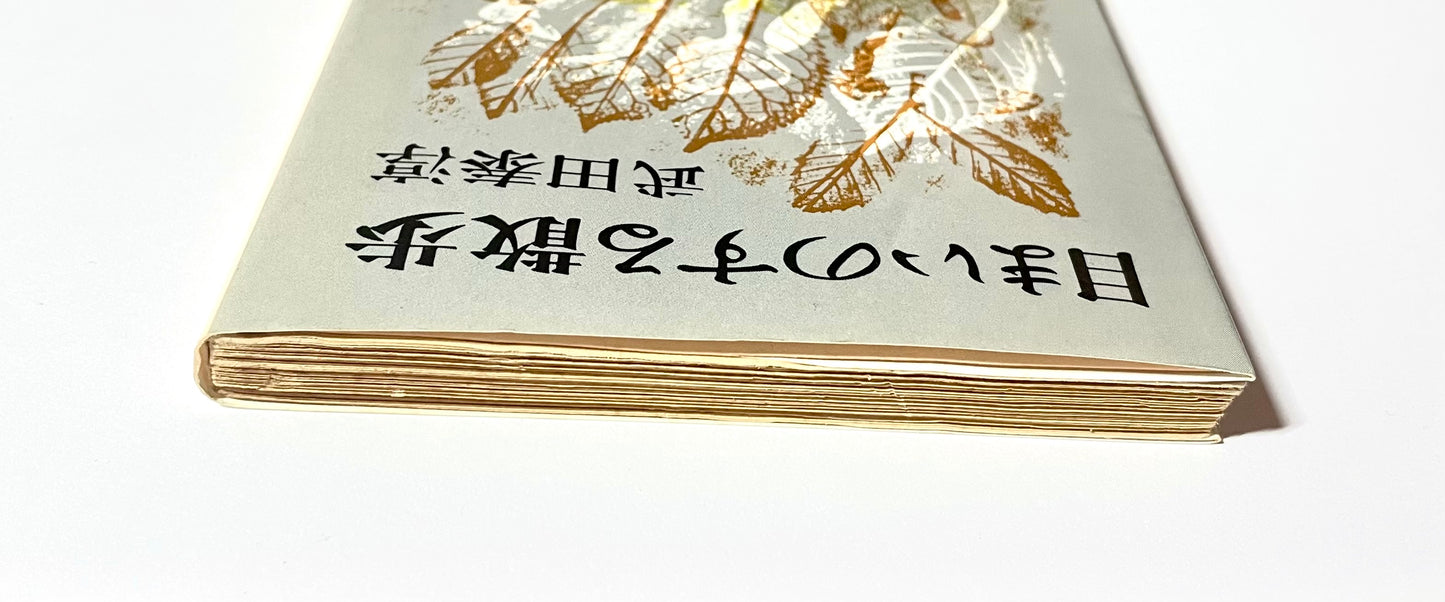 目まいのする散歩
武田泰淳